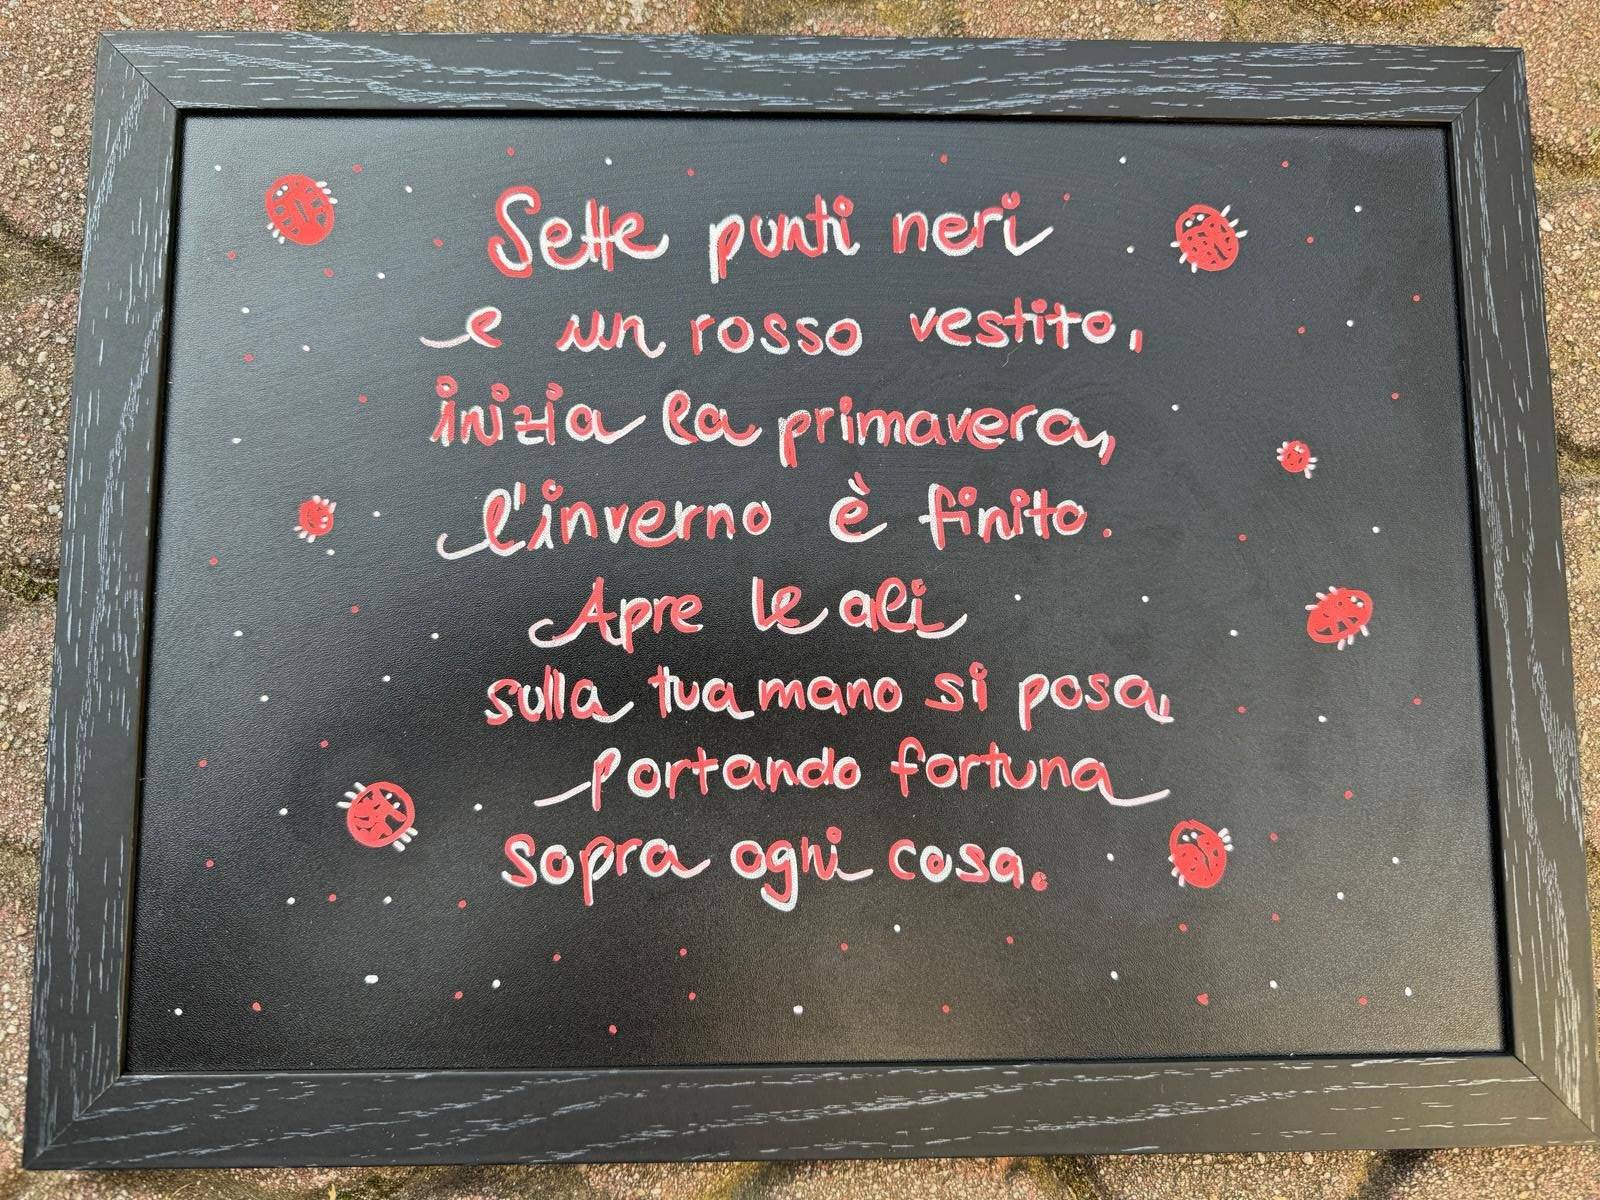 Sette punti neri
e un rosso vestito,
inizia la primavera,
l'inverno è finito.
Apre le ali
sulla tua mano si posa,
portando fortuna
sopra ogni cosa.